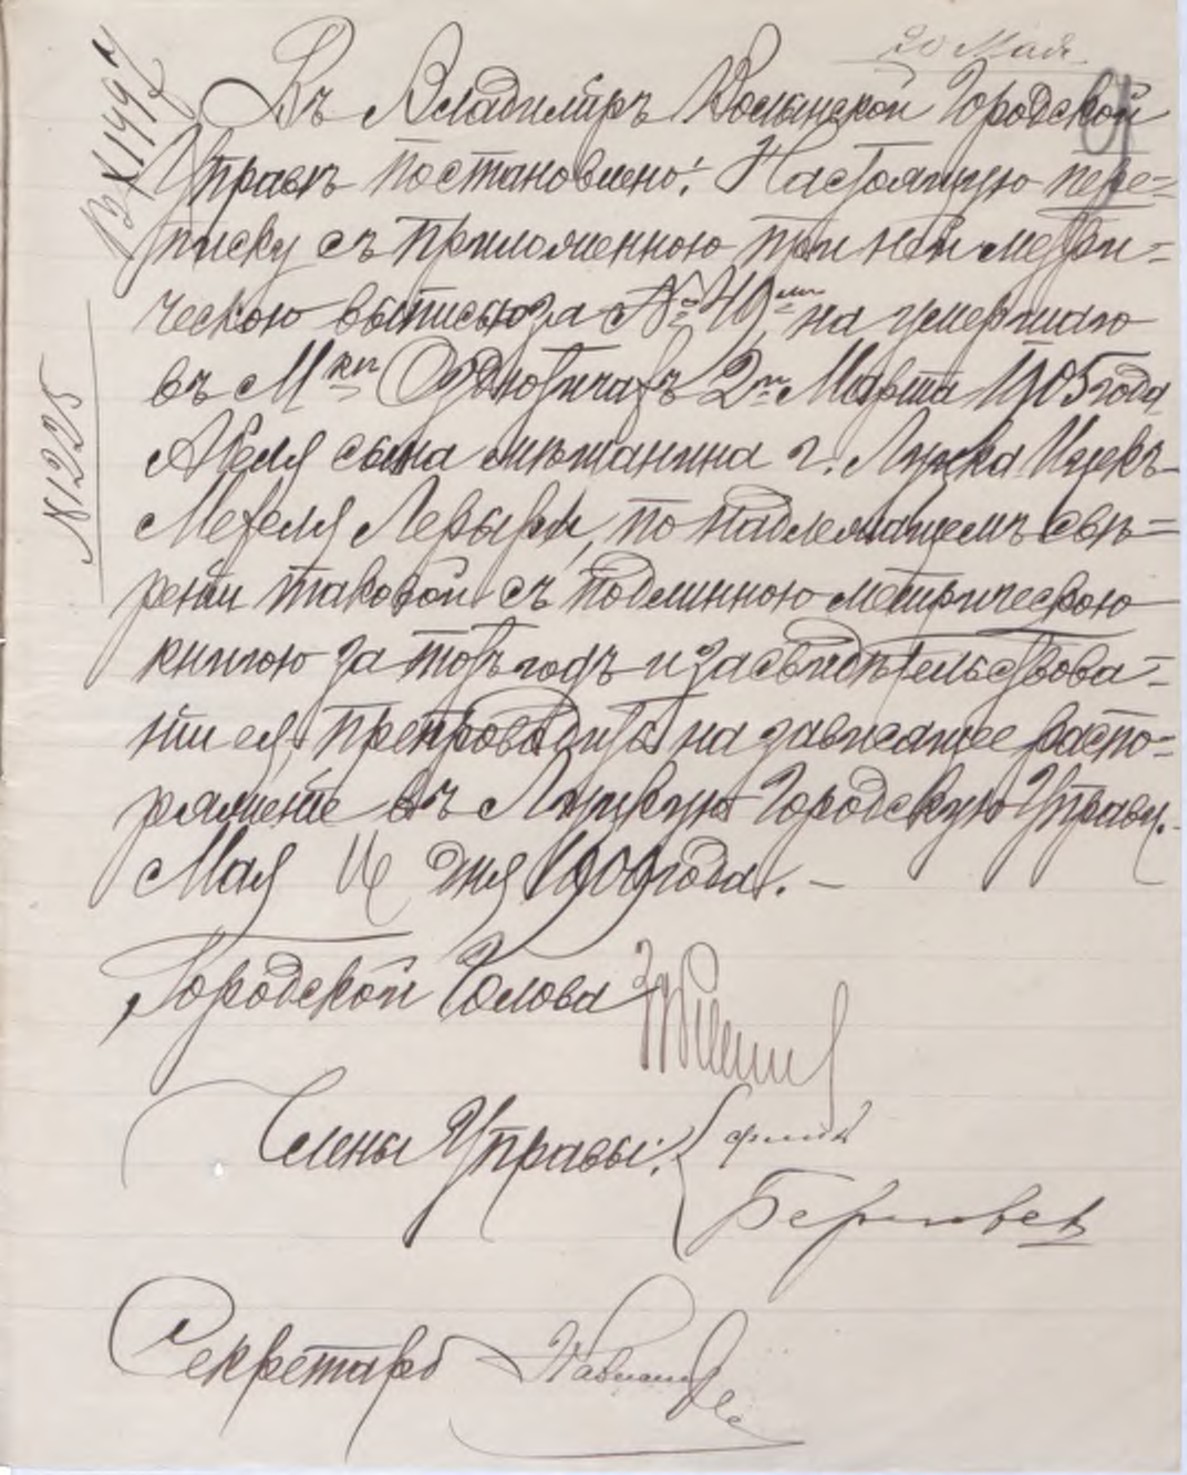 20 Мая
Въ Владимiръ Волынской Городской
Управѣ постановлено: Настоящую пере=
писку съ приложенною при ней метри=
ческою выписью за № 40 на умершаго
въ М 2 Марта 1905 года
сына мѣщанина г. Луцка Ицекъ-
по надлежащемъ свѣ=
ренiи таковой съ подлинною метрическою
книгою за тотъ годъ и засвидѣтельствова=
нiи ея, препроводить на зависящее распо=
ряженiе въ Луцкую Городскую Управу.
Мая 16 дня 1909 года. —
Городской Голова
Члены Управы:
Секретарь
№1225